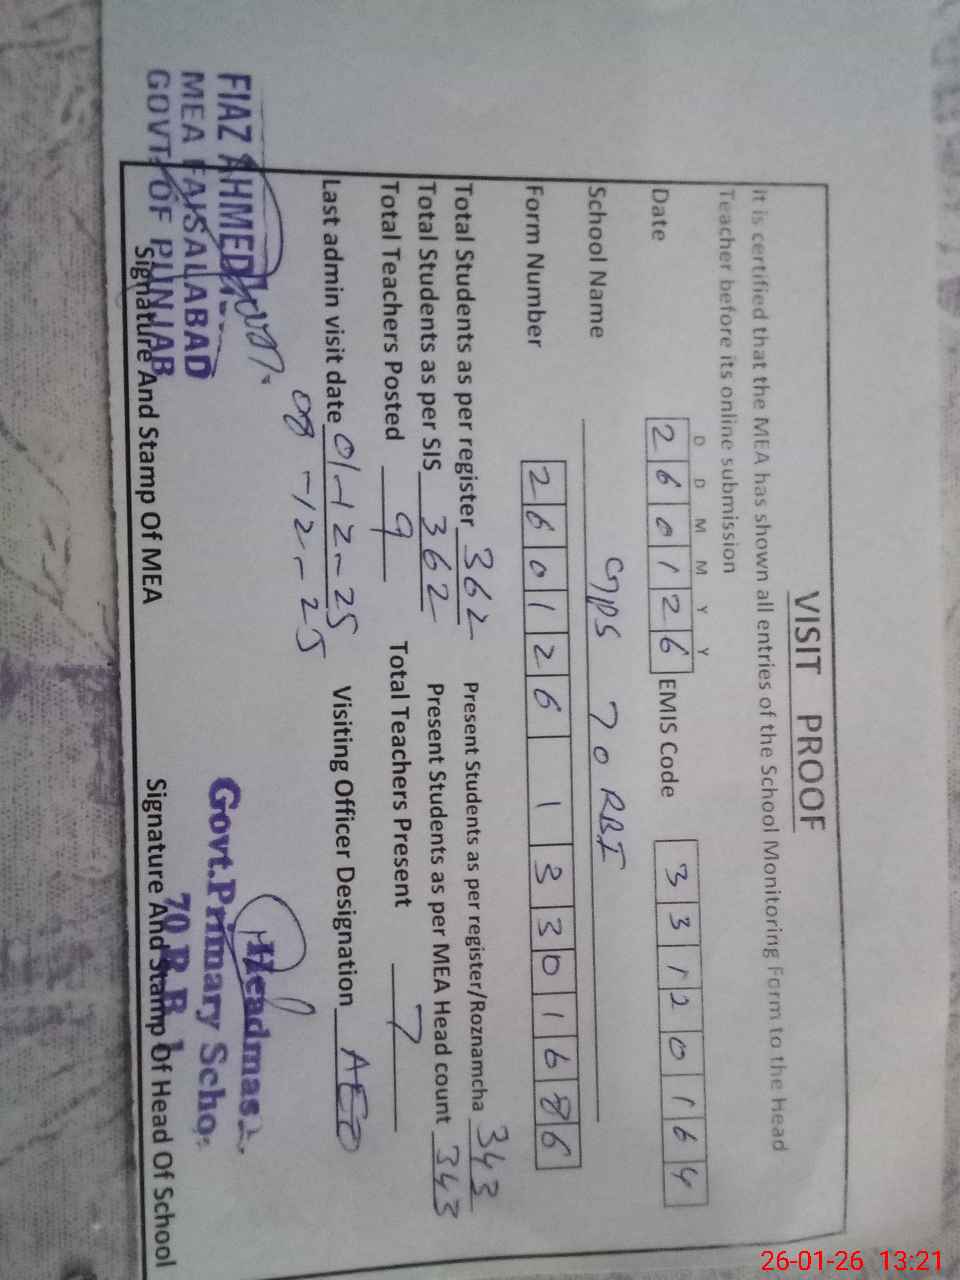 VISIT PROOF
It is certified that the MEA has shown all entries of the School Monitoring Form to the Head
Teacher before its online submission
D D M M Y Y
Date 260126 EMIS Code 33120164
School Name GPS 70 RBI
Form Number 260126 1 3301686
Total Students as per register 362 Present Students as per register/Roznamcha 343
Total Students as per SIS 362 Present Students as per MEA Head count 343
Total Teachers Posted 9 Total Teachers Present 7
Last admin visit date 01-12-25 Visiting Officer Designation AEO
08-12-25
FIAZ AHMED
MEA FAISALABAD
GOVT. OF PUNJAB
Signature And Stamp Of MEA
Headmas
Govt.Primary Scho
70 R B 1
Signature And Stamp Of Head Of School
26-01-26 13:21